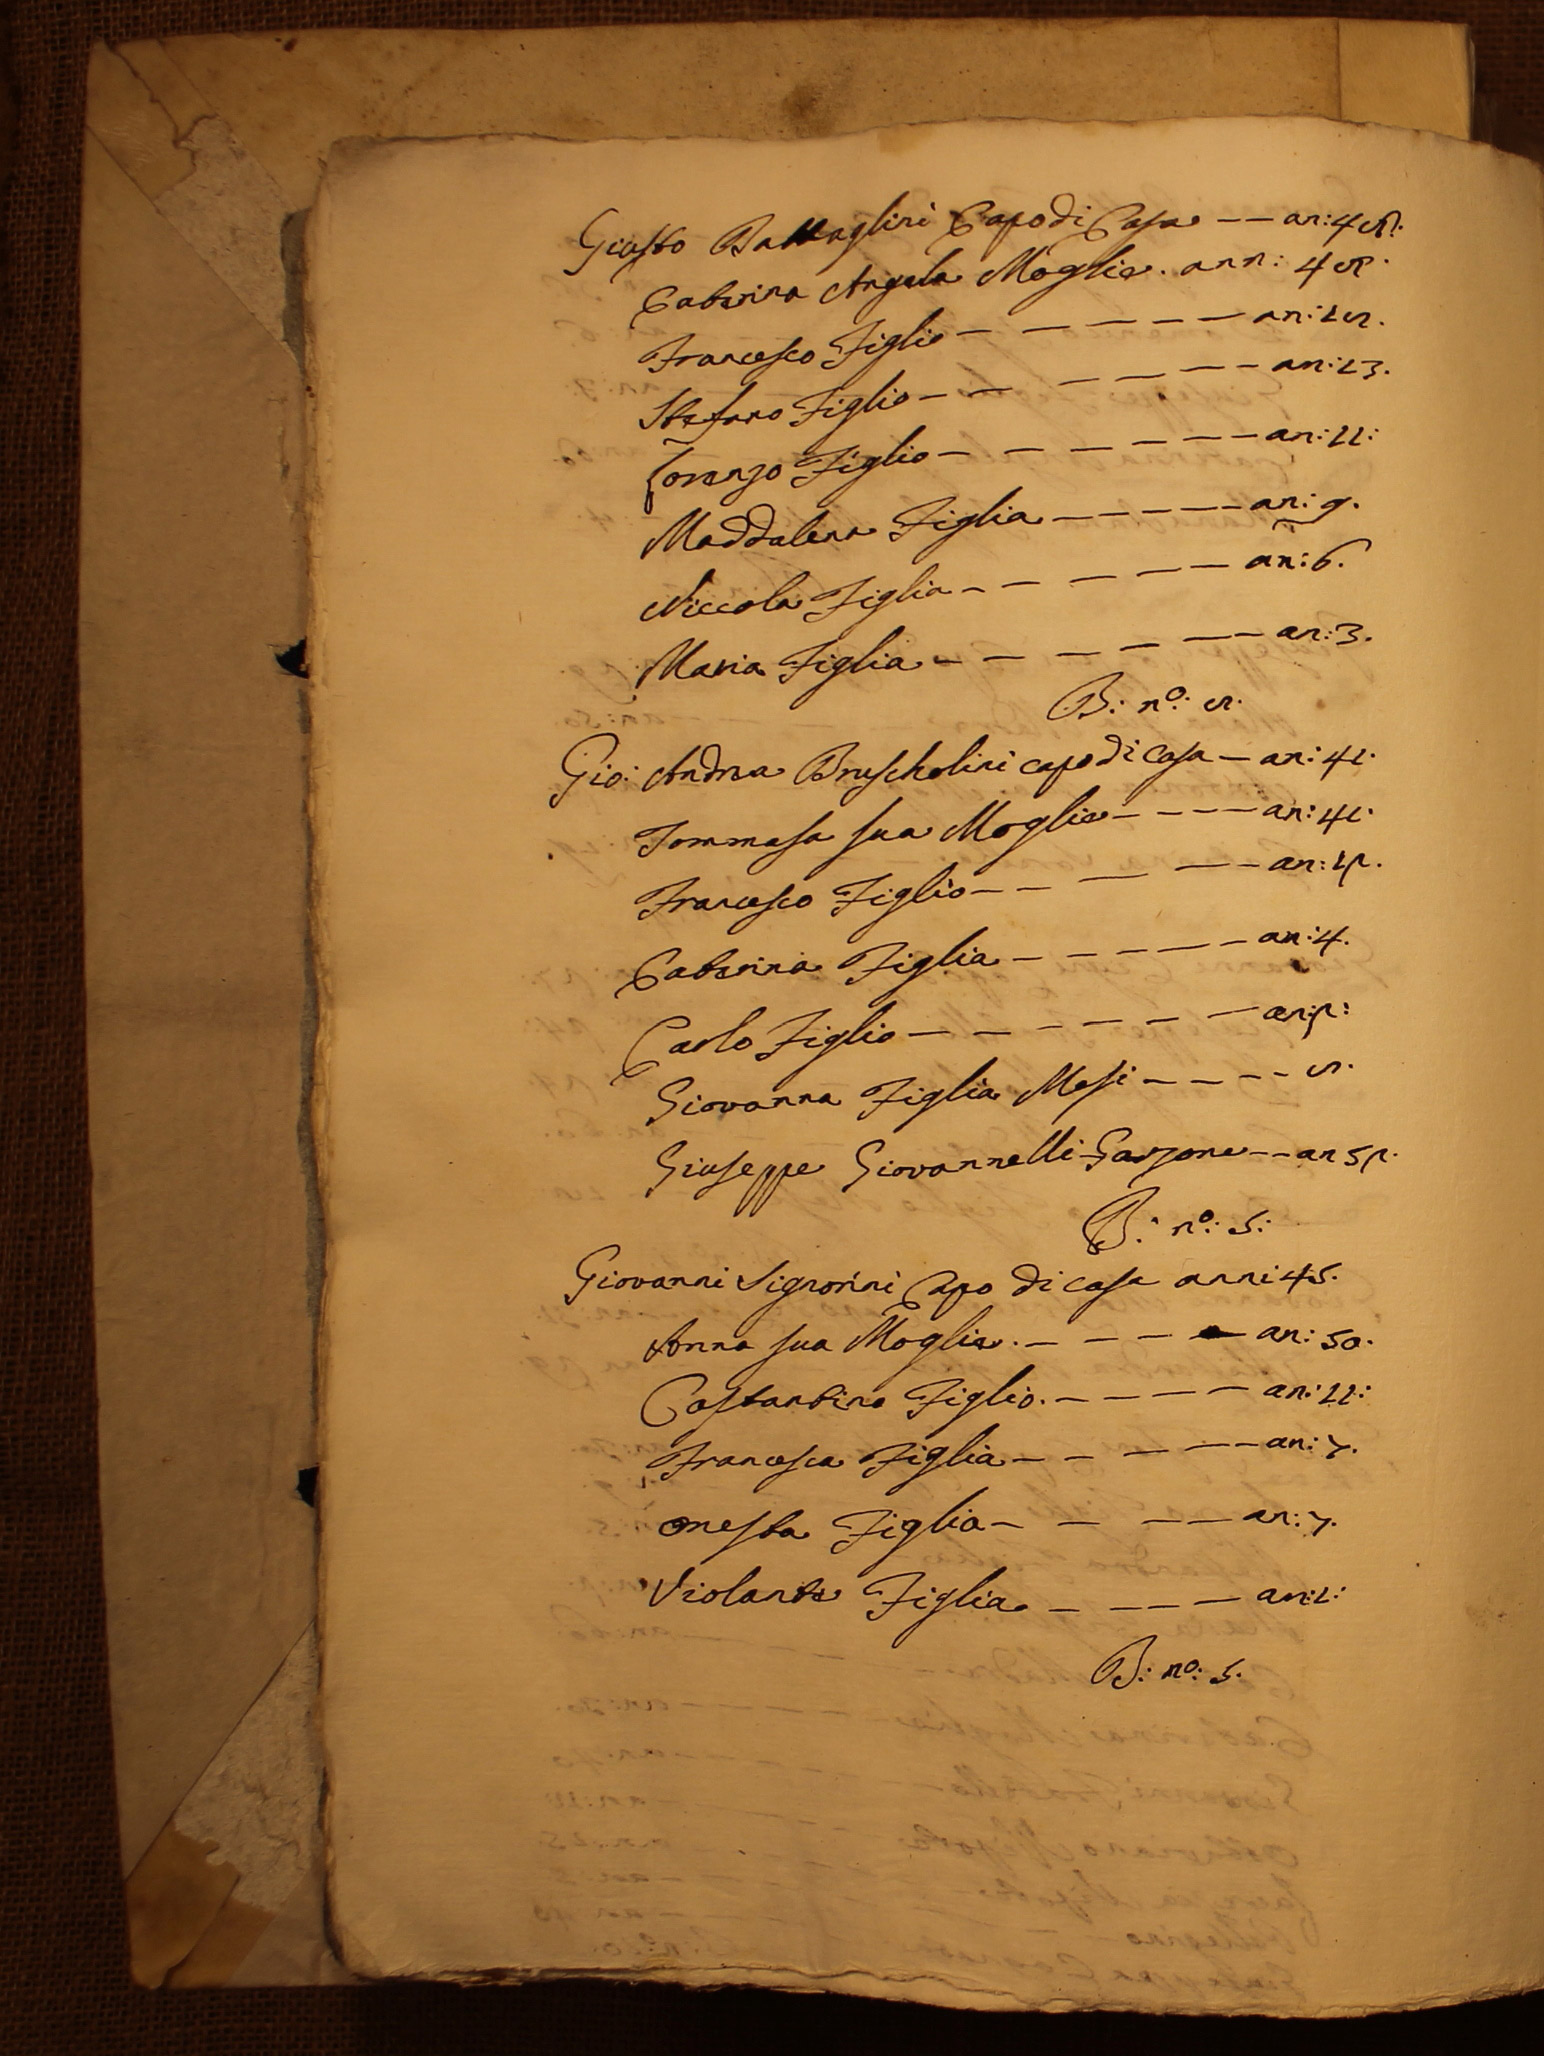 Giusto Battaglini Capo di Casa -- an: 48.
Caterina Angela Moglie. ann: 48.
Francesco Figlio - - - - - - an: 18.
Stefano Figlio - - - - - - an: 13.
Lorenzo Figlio - - - - - - - an: 11:
Maddalena Figlia - - - - - an: 9.
Niccola Figlia - - - - - - an: 6.
Maria Figlia - - - - - - - an: 3.
B: no: 8.
Gio: Andrea Bruscholini capo di casa - an: 41.
Tommasa sua Moglie - - - - an: 41.
Francesco Figlio - - - - - an: 12.
Caterina Figlia - - - - - - an: 4.
Carlo Figlio - - - - - - - an: 2:
Giovanna Figlia Mesi - - - - 8.
Giuseppe Giovannelli Garzone -- an 52.
B: no: 5:
Giovanni Signorini Capo di casa anni 45.
Anna sua Moglie. - - - - an: 50.
Costantino Figlio. - - - - - an: 11:
Francesca Figlia - - - - - an: 7.
onesta Figlia - - - - an: 7.
Violante Figlia - - - - an: 1:
B: no: 5.